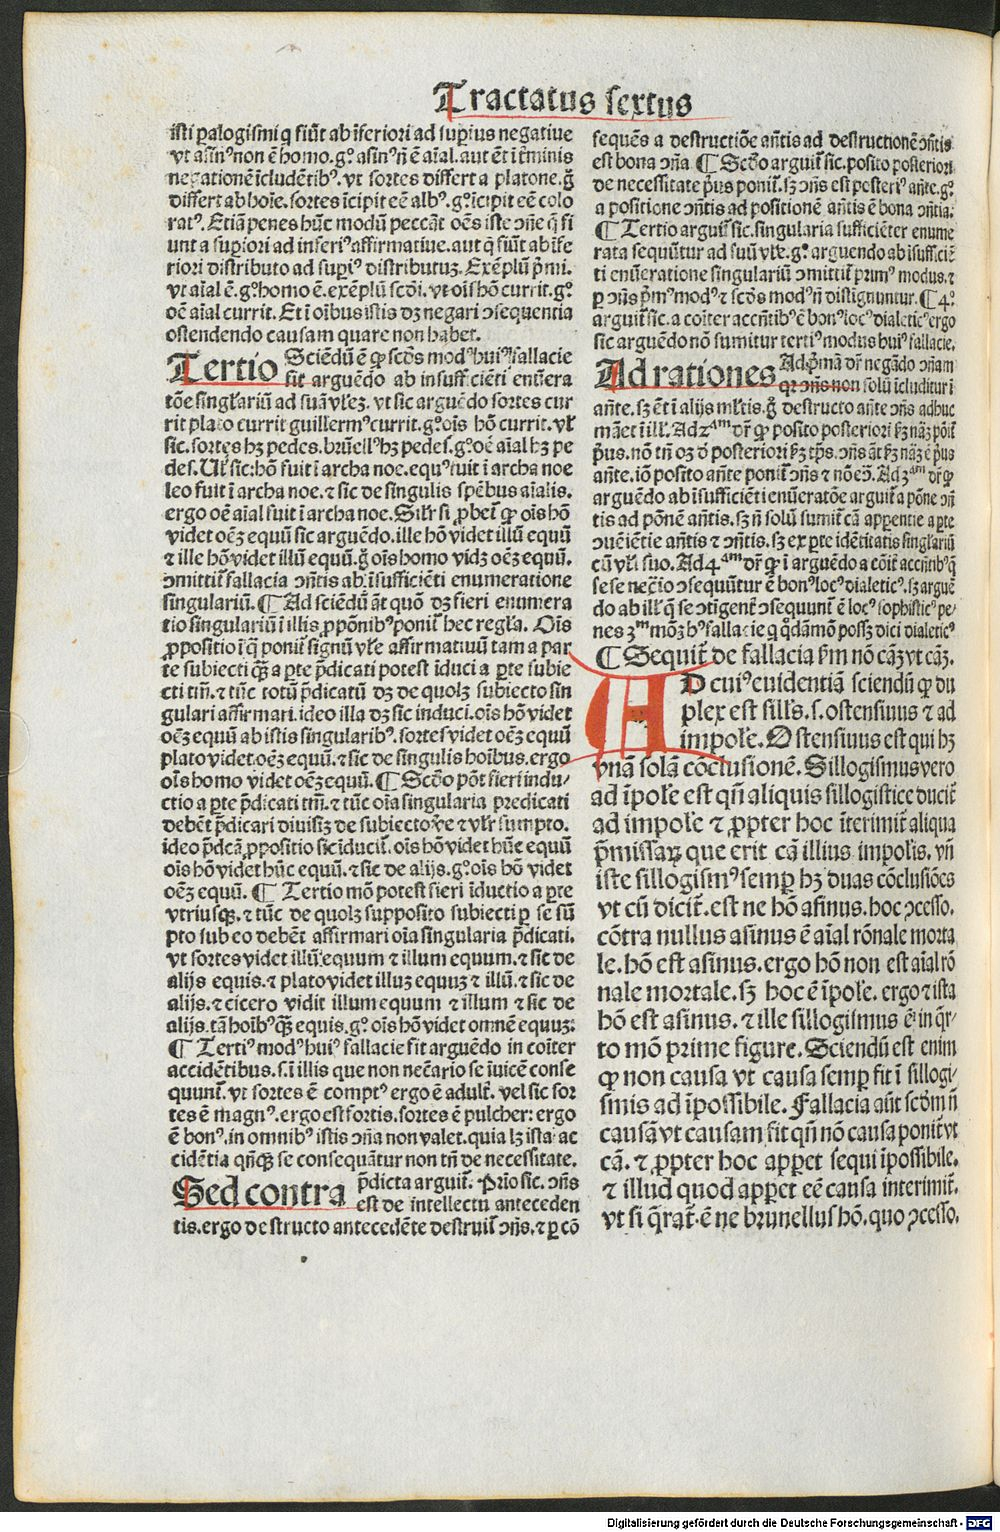 Tractatus sextus
isti palogismi q fiūt ab īferiori ad supīus negatiue
vt asinꝰ non ē homo. gͦ asinꝰ nō ē aīal. aut ēt ī t̄minis
negationē īcludētibꝰ. vt sortes differt a platone. g̊
differt ab hoīe. sortes īcipit eē albꝰ. gͦ īcipit eē colo
ratꝰ. Etiā penes hūc modū peccāt oēs iste ↄn̄e q̄ fi
unt a supiori ad inferiꝰ affirmatiue. aut q̄ fiūt ab īfe
riori distributo ad supiꝰ distributuꝫ. Exēplū p̄mi.
vt aīal ē. gͦ homo ē. exēplū scd̄i. vt oīs hō currit. gͦ
oē aīal currit. Et ī oībus istis dꝫ negari ↄsequentia
ostendendo causam quare non habet.
Tertio Sciēdū ē ꝙ scd̄s modꝰ huiꝰ fallacie
fit arguēdo ab insufficiēti enūera
tōe singl̓ariū ad suā vl̓eꝫ. vt sic arguēdo sortes cur
rit plato currit guillermꝰ currit. gͦ oīs hō currit. vl̓
sic. sortes hꝫ pedes. brūellꝰ hꝫ pedes. gͦ oē aīal hꝫ pe
des. Ul̓ sic: hō fuit ī archa noe. equꝰ fuit ī archa noe
leo fuit ī archa noe. ⁊ sic de singulis spēbus aīalis.
ergo oē aīal fuit ī archa noe. Sil̓r si ꝓbet̄ ꝙ oīs hō
videt oēꝫ equū sic arguēdo. ille hō videt illū equū
⁊ ille hō videt illū equū. g̊ oīs homo vidꝫ oēꝫ equū.
ↄmittit̄ fallacia ↄn̄tis ab īsufficiēti enumeratione
singulariū. ¶ Ad sciēdū āt quō dꝫ fieri enumera
tio singulariū ī illis ꝓpōnibꝰ ponit̄ hec regl̓a. Oīs
ꝓpositio ī q̄ ponit̄ signū vl̓e affirmatiuū tam a par
te subiecti q̄ꝫ a ꝑte p̄dicati potest īduci a ꝑte subie
cti tm̄. ⁊ tūc totū p̄dicatū dꝫ de quolꝫ subiecto sin
gulari affirmari. ideo illa dꝫ sic induci. oīs hō videt
oēꝫ equū ab istis singularibꝰ. sortes videt oēꝫ equū
plato videt oēꝫ equū. ⁊ sic de singulis hoībus. ergo
oīs homo videt oēꝫ equū. ¶ Scd̄o pōt fieri indu-
ctio a ꝑte p̄dicati tm̄. ⁊ tūc oīa singularia predicati
debēt p̄dicari diuisiꝫ de subiecto vl̓e ⁊ vl̓r sumpto.
ideo p̄dcā ꝓpositio sic īducit̄. oīs hō videt hūc equū
oīs hō videt hūc equū. ⁊ sic de alijs. gͦ oīs hō videt
oēꝫ equū. ¶ Tertio mō potest fieri īductio a ꝑte
vtriusqꝫ. ⁊ tūc de quolꝫ supposito subiecti ꝑ se sū
pto sub eo debēt affirmari oīa singularia p̄dicati.
vt sortes videt illū equum ⁊ illum equum. ⁊ sic de
alijs equis. ⁊ plato videt illuꝫ equuꝫ ⁊ illū. ⁊ sic de
alijs. ⁊ cicero vidit illum equum ⁊ illum ⁊ sic de
alijs. tā hoībꝰ q̄ꝫ equis. gͦ oīs hō videt omnē equuꝫ:
¶ Tertiꝰ modꝰ huiꝰ fallacie fit arguēdo in coīter
accidētibus. s. ī illis que non necario se īuicē conse
quunt̄. vt sortes ē comptꝰ ergo ē adult̄. vel sic sor
tes ē magnꝰ. ergo est fortis. sortes ē pulcher: ergo
ē bonꝰ. in omnibꝰ istis ↄn̄a non valet. quia lꝫ ista ac
cidētia qn̄qꝫ se consequātur non tn̄ de necessitate.
Sed contra p̄dicta arguit̄. Prīo sic. ↄn̄s
est de intellectu anteceden
tis. ergo destructo antecedēte destruit̄ ↄn̄s. ⁊ ꝑ cō
sequēs a destructiōe an̄tis ad destructionē ↄn̄tis
est bona ↄn̄a ¶ Scd̄o arguit̄ sic. posito posteriori
de necessitate p̄us ponit̄. sꝫ ↄn̄s est posteriꝰ an̄te. gͦ
a positione ↄn̄tis ad positionē an̄tis ē bona ↄn̄tia.
¶ Tertio arguit̄ sic. singularia sufficiēter enume
rata sequūtur ad suū vl̓e. gͦ arguendo ab īsufficiē
ti enūeratione singulariū ↄmittit̄ prīmꝰ modus. ⁊
ꝑ ↄn̄s p̄mꝰ modꝰ ⁊ scd̄s modꝰ nō distīgnuntur. ¶ 4ͦ
arguit̄ sic. a coīter accn̄tibꝰ ē bonꝰ locꝰ dialeticꝰ ergo
sic arguēdo nō sumitur tertiꝰ modus huiꝰ fallacie.
Ad rationes Ad p̄mā dr̄ negādo ↄn̄am
qꝛ ↄn̄s non solū īcluditur ī
an̄te. sꝫ ēt ī alijs ml̓tis. g̊ destructo an̄te ↄn̄s adhuc
manet ī ill̓. Ad 2ᵃᵐ dr̄ ꝙ posito posteriori
p̄us. nō tn̄
an̄te. iō posito an̄te ponit̄ ↄn̄s ⁊ nō eↄ̄. Ad 3ᵃᵐ dr̄ ꝙ
arguēdo ab īsufficiēti enūeratōe arguit̄ a pōne ↄn̄
tis ad pōnē an̄tis. sꝫ nō solū sumit̄ cā apparentie a ꝑte
ↄuēiētie an̄tis ⁊ ↄn̄tis. sꝫ ex ꝑte idētitatis singl̓ariū
cū vl̓i suo. Ad 4ᵃᵐ dr̄ ꝙ ī arguēdo a coīt̄ accn̄tibꝰ q̄
se se necīo ↄsequūtur ē bonꝰ locꝰ dialeticꝰ. sꝫ arguē
do ab ill̓ q̄ se ↄtīgent̄ ↄsequunt̄ ē locꝰ sophisticꝰ pe-
nes 3ᵐ modꝫ hꝰ fallacie q quodāmō possꝫ dici dialeticꝰ
¶ Sequit̄ de fallacia fm nō cāꝫ vt cāꝫ.
AD cuiꝰ euidentiā sciendū ꝙ du
plex est sill̓s. s. ostensiuus ⁊ ad
impol̓e. Ostensiuus est qui hꝫ
vnā solā cōclusionē. Sillogismus vero
ad īpol̓e est qn̄ aliquis sillogistice ducit̄
ad impol̓e ⁊ ꝓpter hoc īterimit̄ aliqua
p̄missaꝝ que erit cā illius impol̓is. vn̄
iste sillogismꝰ semꝑ hꝫ duas cōclusiōes
vt cū dicit̄. est ne hō asinus. hoc ↄcesso.
cōtra nullus asinus ē aīal rōnale morta
le. hō est asinus. ergo hō non est aīal rō
nale mortale. sꝫ hoc ē īpol̓e. ergo ⁊ ista
hō est asinus. ⁊ ille sillogismus ē in q̄r-
to mō prime figure. Sciendū est enim
ꝙ non causa vt causa semꝑ fit ī sillogi-
smis ad īpossibile. Fallacia aūt scd̄m nō
causā vt causam fit qn̄ nō causa ponit̄ vt
cā. ⁊ ꝓpter hoc apparet sequi īpossibile.
⁊ illud quod apparet eē causa interimit̄.
vt si q̄rat̄. ē ne brunellus hō. quo ↄcesso.
Digitalisierung gefördert durch die Deutsche Forschungsgemeinschaft - DFG